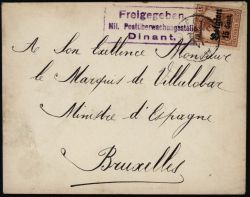 Freigegeben
Mil. Postüberwachungsstelle
Dinant.
Belgien
A Son Exellence Monsieur
le Marquis de Villalobar
Ministre d'Espagne
Bruxelles